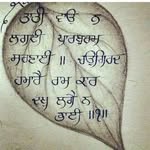 ਤਤੀ ਵਾਉ ਨ
ਲਗਈ ਪਾਰਬ੍ਰਹਮ
ਸਰਣਾਈ ॥ ਚਉਗਿਰਦ
ਹਮਾਰੈ ਰਾਮ ਕਾਰ
ਦੁਖੁ ਲਗੈ ਨ
ਭਾਈ ॥੧॥